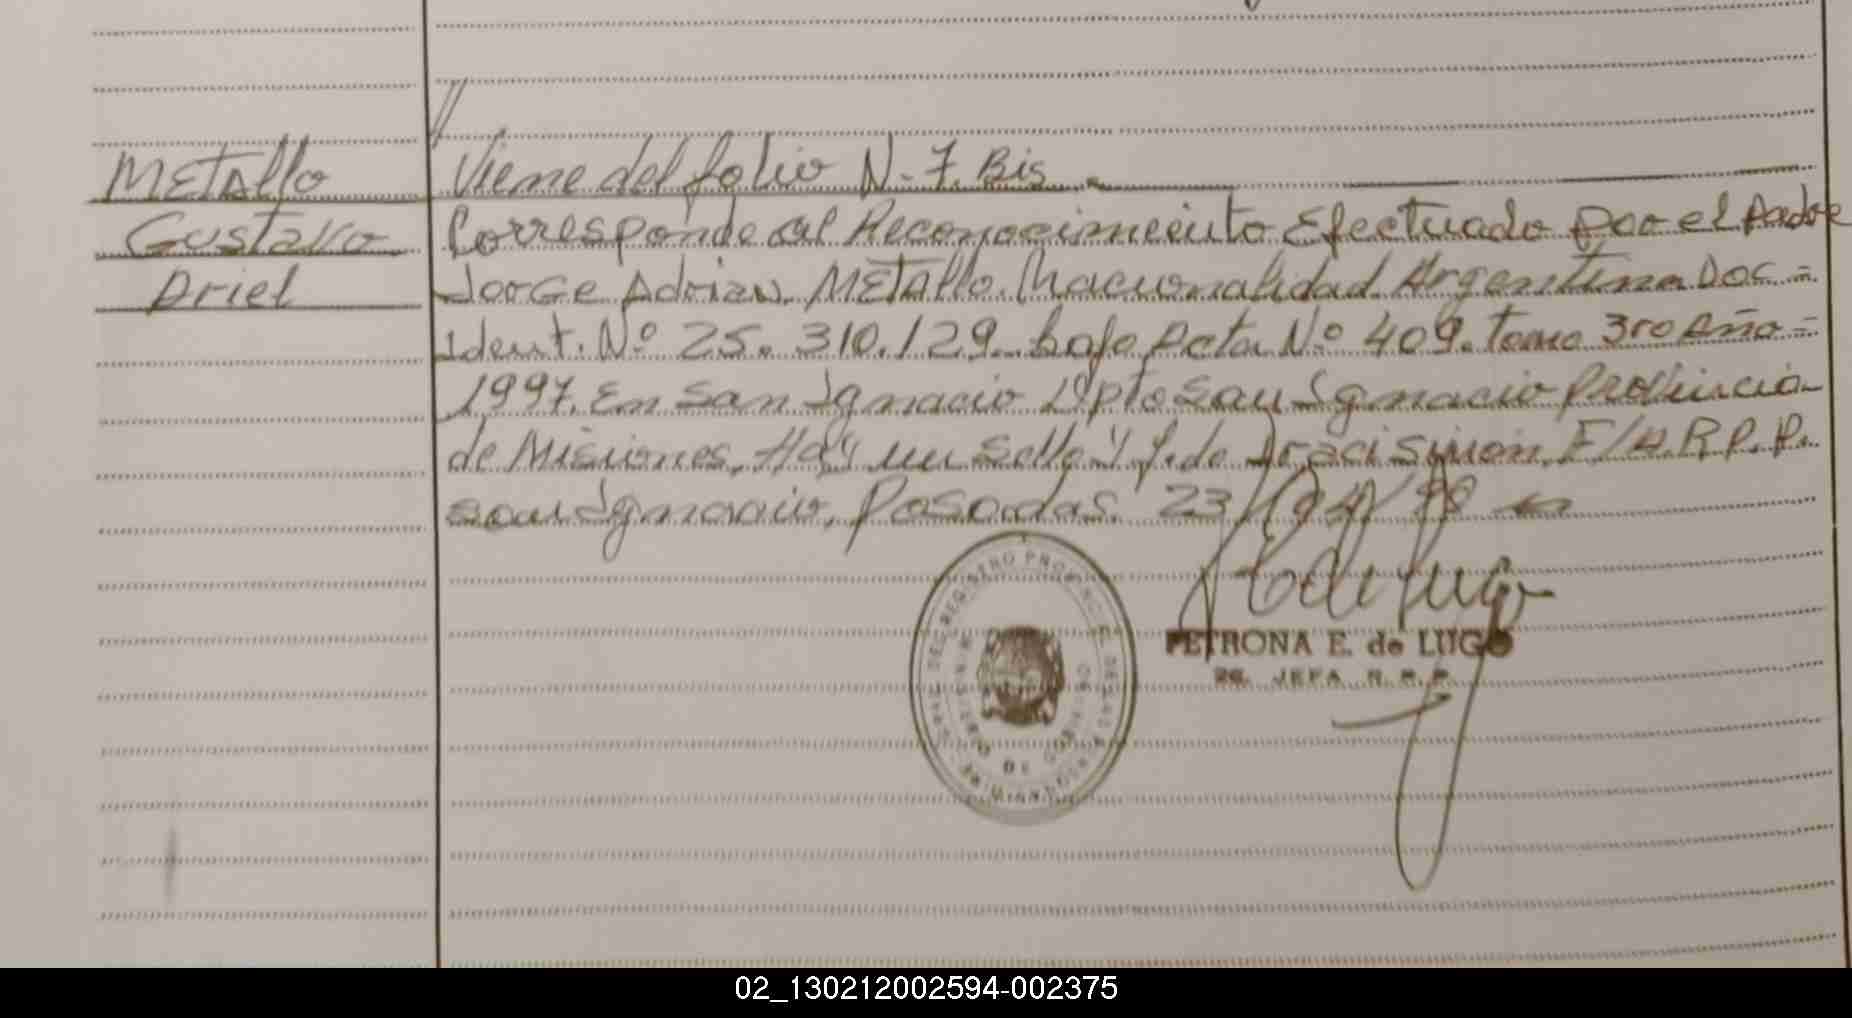 Metallo
Gustavo
Ariel
Viene del folio N. 7. Bis
Corresponde al Reconocimeiuto Efectuado por el Padre
Jorge Adrian Metallo. Nacionalidad Argentina Doc =
Ident. Nº 25.310.129. bajo Acta Nº 409. Tomo 3ro Año =
1997. En San Ignacio Dpto San Ignacio Provincia
de Misiones, Hay un sello y f. do Simon. F/A. R.P.P.
San Ignacio, Posadas. 23/04/98
PETRONA E. de LUGO
JEFA R.R.P.
MINISTERIO DE GOBIERNO
02_130212002594-002375